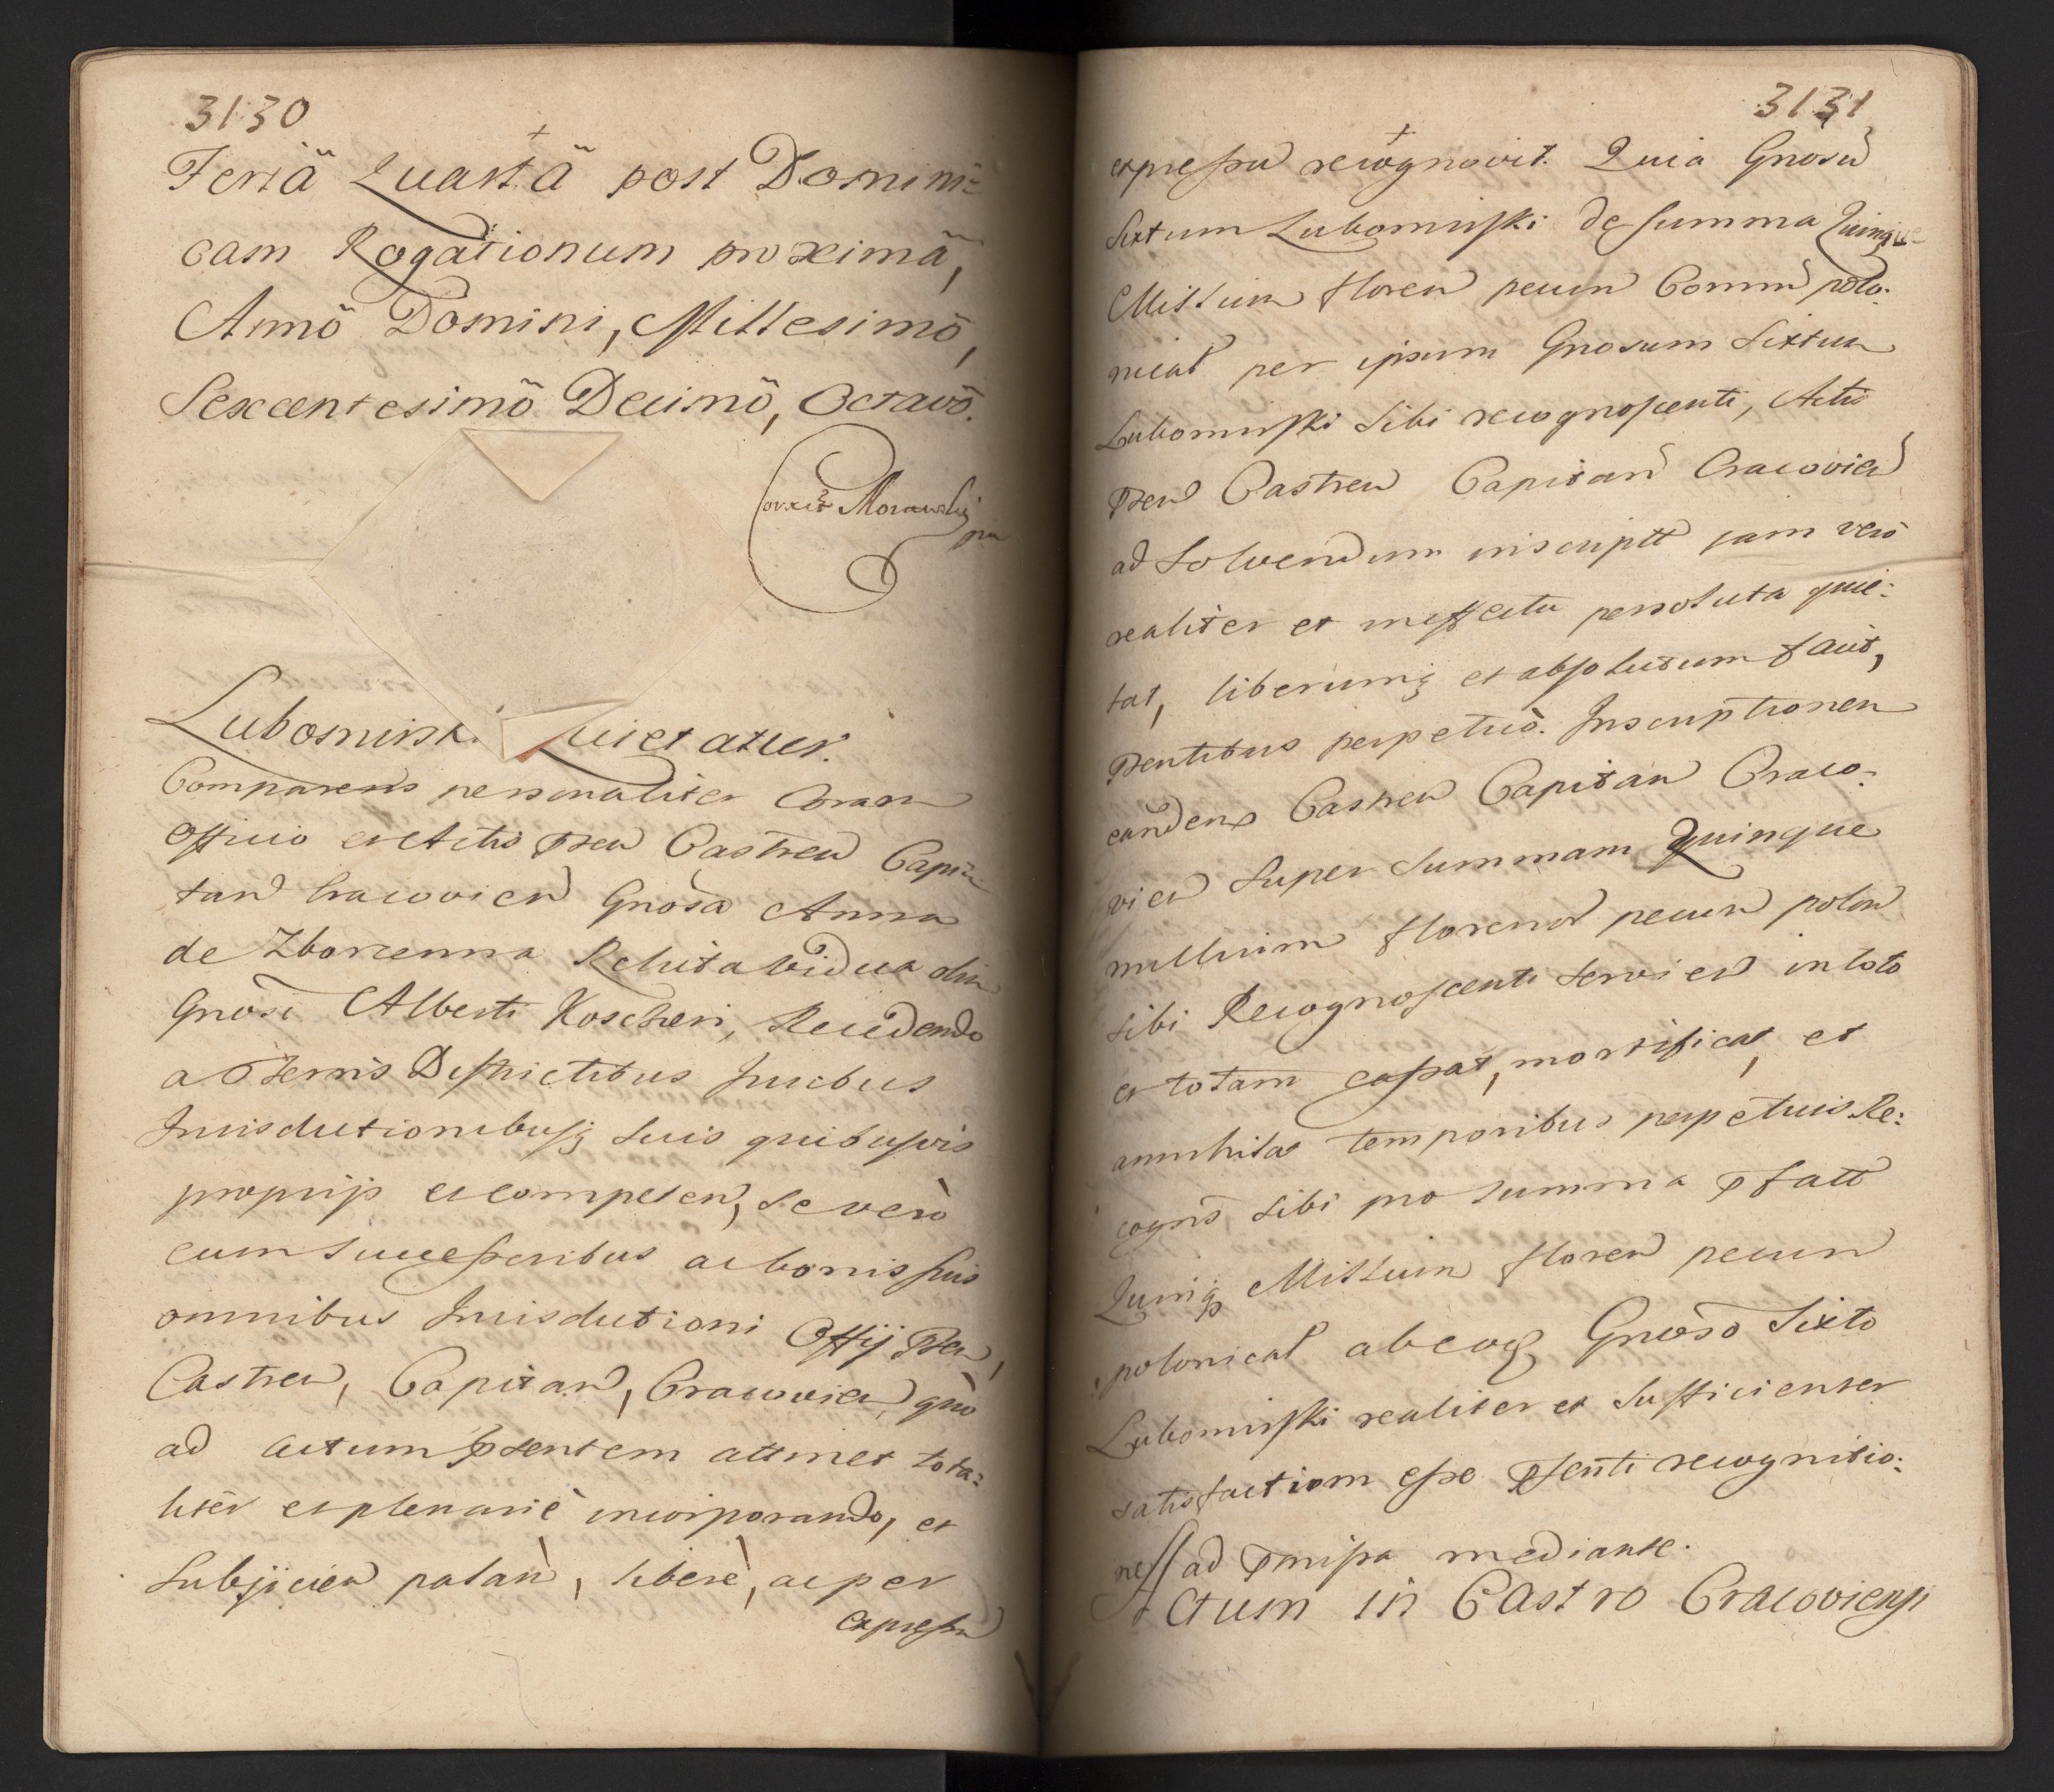 3130
Feriä Quartä post Domini=
cam Rogationum proximä,
Annö Domini, Millesimö,
Sexcentesimö Decimö, Octavö.
Correxit Morawski
Lubomirsk. Quietatur.
Comparens personaliter Coram
Officio et Actis pnten Castren Capi=
tan Cracovien Gnosa Anna
de Zborzenna Relicta vidua olim
Gnosi Alberti Koscheri, Recedendo
a Terris Districtibus Juribus
Jurisdictionibusq suis quibusvis
proprijs et competen, se verò
cum Successoribus ac bonis suis
omnibus Jurisdictioni Offij pnten,
Castren, Capitan, Cracovien, quò
ad actum pntentem attinet tota=
liter et plenariè incorporando, et
Subjicien palam, liberè, ac per
expressu
3131
expressu recognovit. Quia Gnosu
Sixtum Lubomirski de Summa Quinque
Millium floren pecun Comm polo:
nical per ipsum Gnosum Sixtum
Lubomirski Sibi recognoscenti, Actis
pnten Castren Capitan Cracovien
ad Solvendum inscriptt jam verò
realiter et in effectu persoluta quie:
tat, liberumq et absolutum facit,
pntentibus perpetuò. Inscriptionem
eandem Castren Capitan Craco:
vien Super Summam Quinque
millium florenor pecun polon
Sibi Recognoscenti Servien in toto
et totam cassat, mortificat, et
annihilat temporibus perpetuis Re:
cogns Sibi pro Summa pfatt
Quinq Millium floren pecun
polonical ab eoq Gnoso Sixto
Lubomirski realiter et Sufficienter
satisfactiom esse psenti recognitio:
ne ad pmissa mediante.
Actum in Castro Cracoviensi